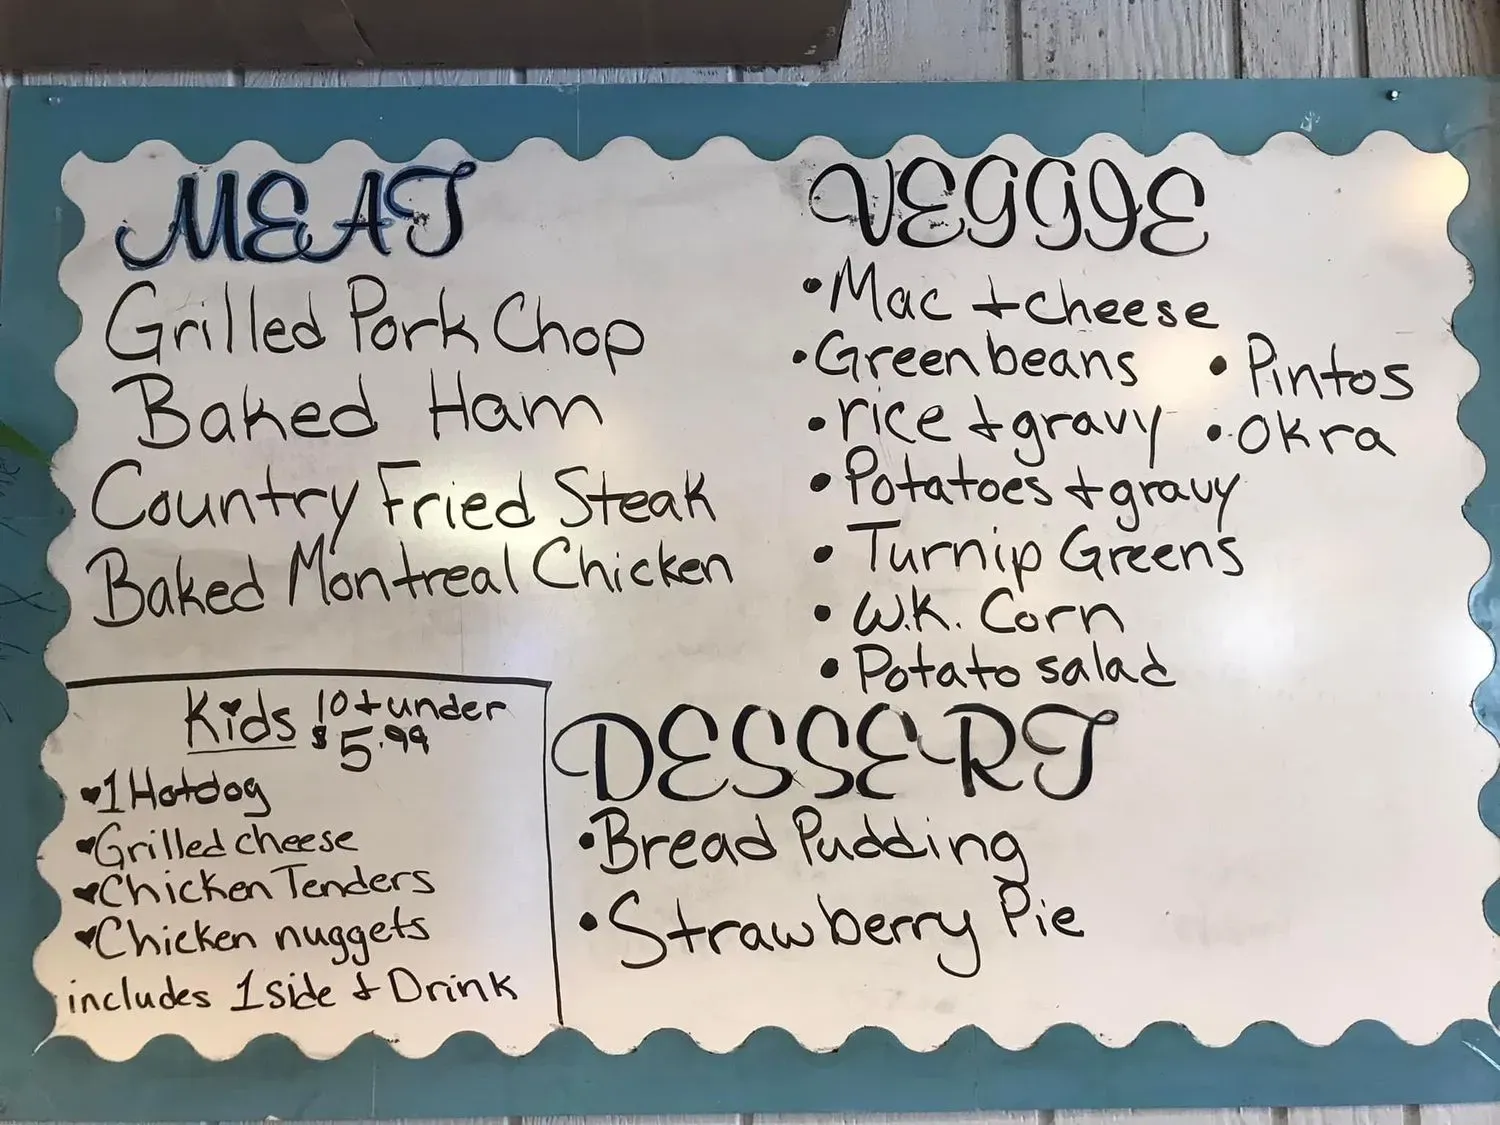 MEAT
Grilled Pork Chop
Baked Ham
Country Fried Steak
Baked Montreal Chicken
VEGGIE
•Mac + cheese
•Green beans
•Pintos
•rice + gravy
•Okra
•Potatoes + gravy
•Turnip Greens
•W.K. Corn
•Potato salad
Kids 10 + under
$5.99
♥1 Hotdog
♥Grilled cheese
♥Chicken Tenders
♥Chicken nuggets
includes 1 side + Drink
DESSERT
•Bread Pudding
•Strawberry Pie